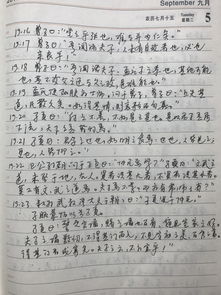 September 九月
农历七月十五
Tuesday
星期二
5
19·16 曾子曰:"堂堂乎张也,难与并为仁矣。"
19·17 曾子曰:"吾闻诸夫子,人未有自致者也,必也
亲丧乎!"
19·18 曾子曰:"吾闻诸夫子,孟庄子之孝也,其他可能
也;其不改父之臣与父之政,是难能也。"
19·19 孟氏使阳肤为士师,问于曾子。曾子曰:"上失其
道,民散久矣。如得其情,则哀矜而勿喜。"
19·20 子贡曰:"纣之不善,不如是之甚也。是以君子恶居
下流,天下之恶皆归焉。"
19·21 子贡曰:"君子之过也,如日月之食焉。过也,人皆见之;
更也,人皆仰之。"
19·22 卫公孙朝问于子贡曰:"仲尼焉学?"子贡曰:"文武之
道,未坠于地,在人。贤者识其大者,不贤者识其小者。
莫不有文武之道焉。夫子焉不学?而亦何常师之有?"
19·23 叔孙武叔语大夫于朝曰:"子贡贤于仲尼。"
子服景伯以告子贡。
子贡曰:"譬之宫墙,赐之墙也及肩,窥见室家之好。
夫子之墙数仞,不得其门而入,不见宗庙之美,百官之富。
得其门者或寡矣。夫子之云,不亦宜乎!"